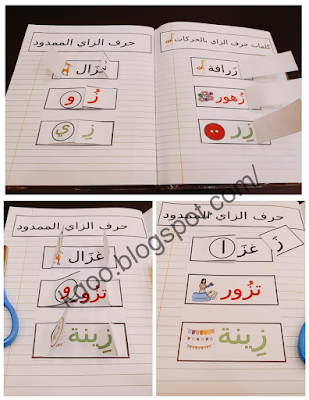 كلمات حرف الزاي بالحركات
زَرافة
زُهور
زِر
حرف الزاي الممدود
غَزال
زُ و
زِ ي
حرف الزاي الممدود
غَزال
تزو
و
زِينة
حرف الزاي الممدود
غَزَ ا
زَ
تزُور
زِينة
goo.blogspot.com/